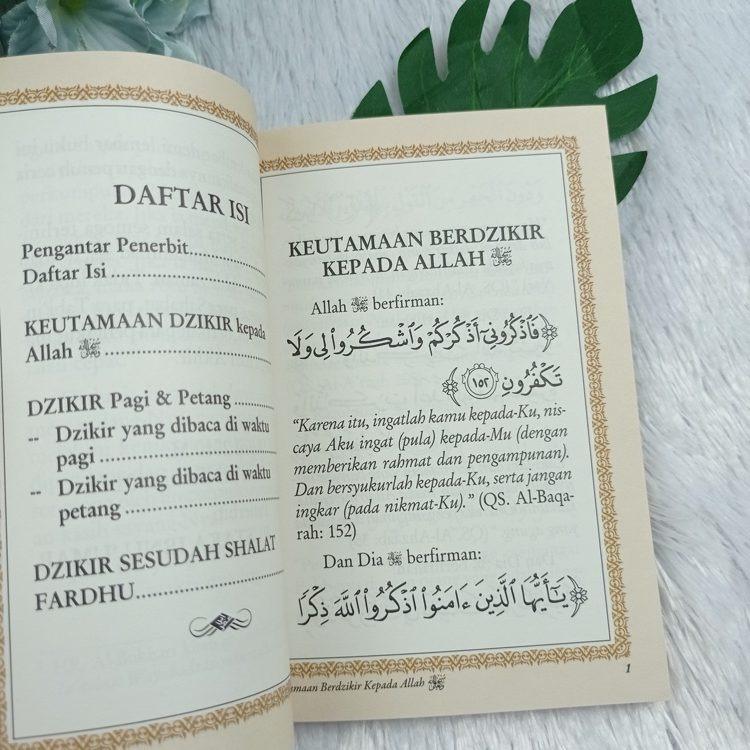 DAFTAR ISI
Pengantar Penerbit..................
Daftar Isi ..............................
KEUTAMAAN DZIKIR kepada
Allah ﷻ ...............................
DZIKIR Pagi & Petang .............
-- Dzikir yang dibaca di waktu
pagi ...............................
-- Dzikir yang dibaca di waktu
petang ............................
DZIKIR SESUDAH SHALAT
FARDHU.........................
KEUTAMAAN BERDZIKIR
KEPADA ALLAH ﷻ
Allah ﷻ berfirman:
﴿فَٱذۡكُرُونِيٓ أَذۡكُرۡكُمۡ وَٱشۡكُرُواْ لِي وَلَا
تَكۡفُرُونِ ١٥٢﴾
“Karena itu, ingatlah kamu kepada-Ku, nis-
caya Aku ingat (pula) kepada-Mu (dengan
memberikan rahmat dan pengampunan).
Dan bersyukurlah kepada-Ku, serta jangan
ingkar (pada nikmat-Ku).” (QS. Al-Baqa-
rah: 152)
Dan Dia ﷻ berfirman:
﴿يَٰٓأَيُّهَا ٱلَّذِينَ ءَامَنُواْ ٱذۡكُرُواْ ٱللَّهَ ذِكۡرٗا
Berdzikir Kepada Allah ﷻ
1